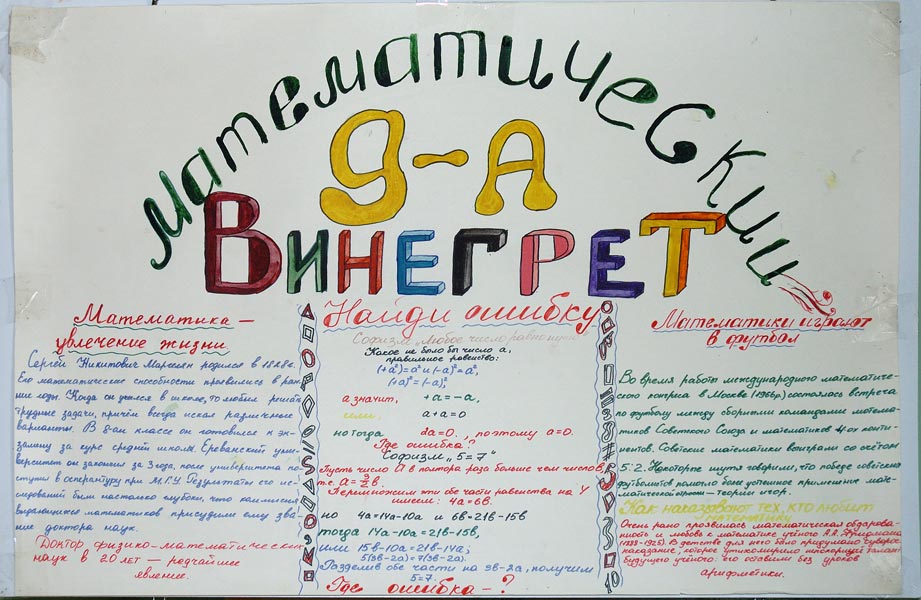 Математический
9-А
Винегрет
Математика —
увлечение жизни.
Сергей Никитович Мергелян родился в 1928г.
Его математические способности проявились в ран
ние годы. Когда он учился в школе, то любил решать
трудные задачи, причём всегда искал различные
варианты. В 8-ом классе он готовился к эк-
замену за курс средней школы. Ереванский уни-
верситет он закончил за 3 года, после университета по-
ступил в аспирантуру при М.Г.У. Результаты его ис-
следований были настолько глубоки, что комиссия
выдающихся математиков присудили ему зва-
ние доктора наук.
Доктор физико-математических
наук в 20 лет — редчайшее
явление.
Найди ошибку
Софизм "Любое число равно нулю"
Какое не было бы число а,
правильное равенство:
(+а²)=а² и (-а)²=а²,
(+а)²=(-а)²,
а значит, +а=-а,
или, а+а=0
но тогда 2а=0, поэтому а=0.
Где ошибка?
Софизм „5=7"
Пусть число а в полтора раза больше чем число в,
т.е. а=3/2в.
Перемножим эти обе части равенства на 4
имеем: 4а=6в
но 4а=14а-10а и 6в=21в-15в
тогда 14а-10а=21в-15в,
или 15в-10а=21в-14а;
5(3в-2а)=7(3в-2а).
Разделив обе части на 3в-2а, получим
5=7.
Где ошибка-?
Математики играют
в футбол
Во время работы международного математичес-
кого конгресса в Москве (1966г.) состоялась встреча
по футболу между сборными командами матема-
тиков Советского Союза и математиков 4ох конти-
нентов. Советские математики выиграли со счётом
5:2. Некоторые шутя говорили, что победе советских
футболистов помогло более успешное применение мате-
матической игры — теории игор.
Как наказывают тех, кто любит
математику.
Очень рано проявилась математическая одарован-
ность и любовь к математике учёного А.А. Фридмана
(1888-1925). В детстве для него было придумано суровое
наказание, которое утихомирило непокорный талант
будущего учёного: его оставили без уроков
арифметики.